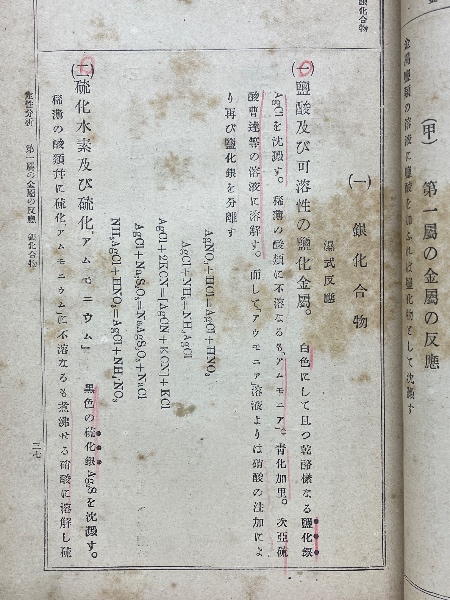 銀化合物
(甲) 第一屬の金屬の反應
金屬鹽類の溶液に鹽酸を加ふれば鹽化物として沈澱す
(一) 銀化合物
濕式反應
(一)鹽酸及び可溶性の鹽化金屬。 白色にして且つ乾酪樣なる鹽化銀
AgClを沈澱す。稀薄の酸類に不溶なるも、アムモニア」。靑化加里。次亞硫
酸曹達等の溶液に溶解す。而して「アウモニア」溶液よりは硝酸の注加によ
り再び鹽化銀を分離す
AgNO₃+HCl=AgCl+HNO₃
AgCl+NH₃=NH₃AgCl
AgCl+2KCN=[AgCN+KCN]+KCl
AgCl+Na₂S₂O₃=NaAgS₂O₃+NaCl
NH₃AgCl+HNO₃=AgCl+NH₄NO₃
(二)硫化水素及び硫化「アムモニウム」 黑色の硫化銀Ag₂Sを沈澱す。
稀薄の酸類幷に硫化「アムモニウム」に不溶なるも煮沸せる硝酸に溶解し硫
定性分析 第一屬の金屬の反應 銀化合物
二七